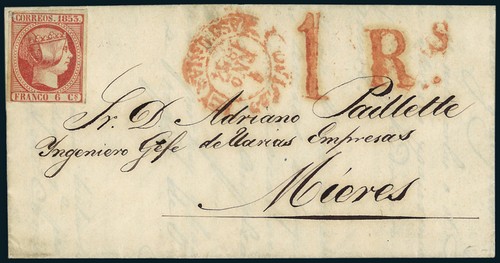 CORREOS. 1853.
FRANCO 6 Cs
1 Rs.
Sr. D. Adriano Paillette
Ingeniero Gefe de Varias Empresas
Mieres